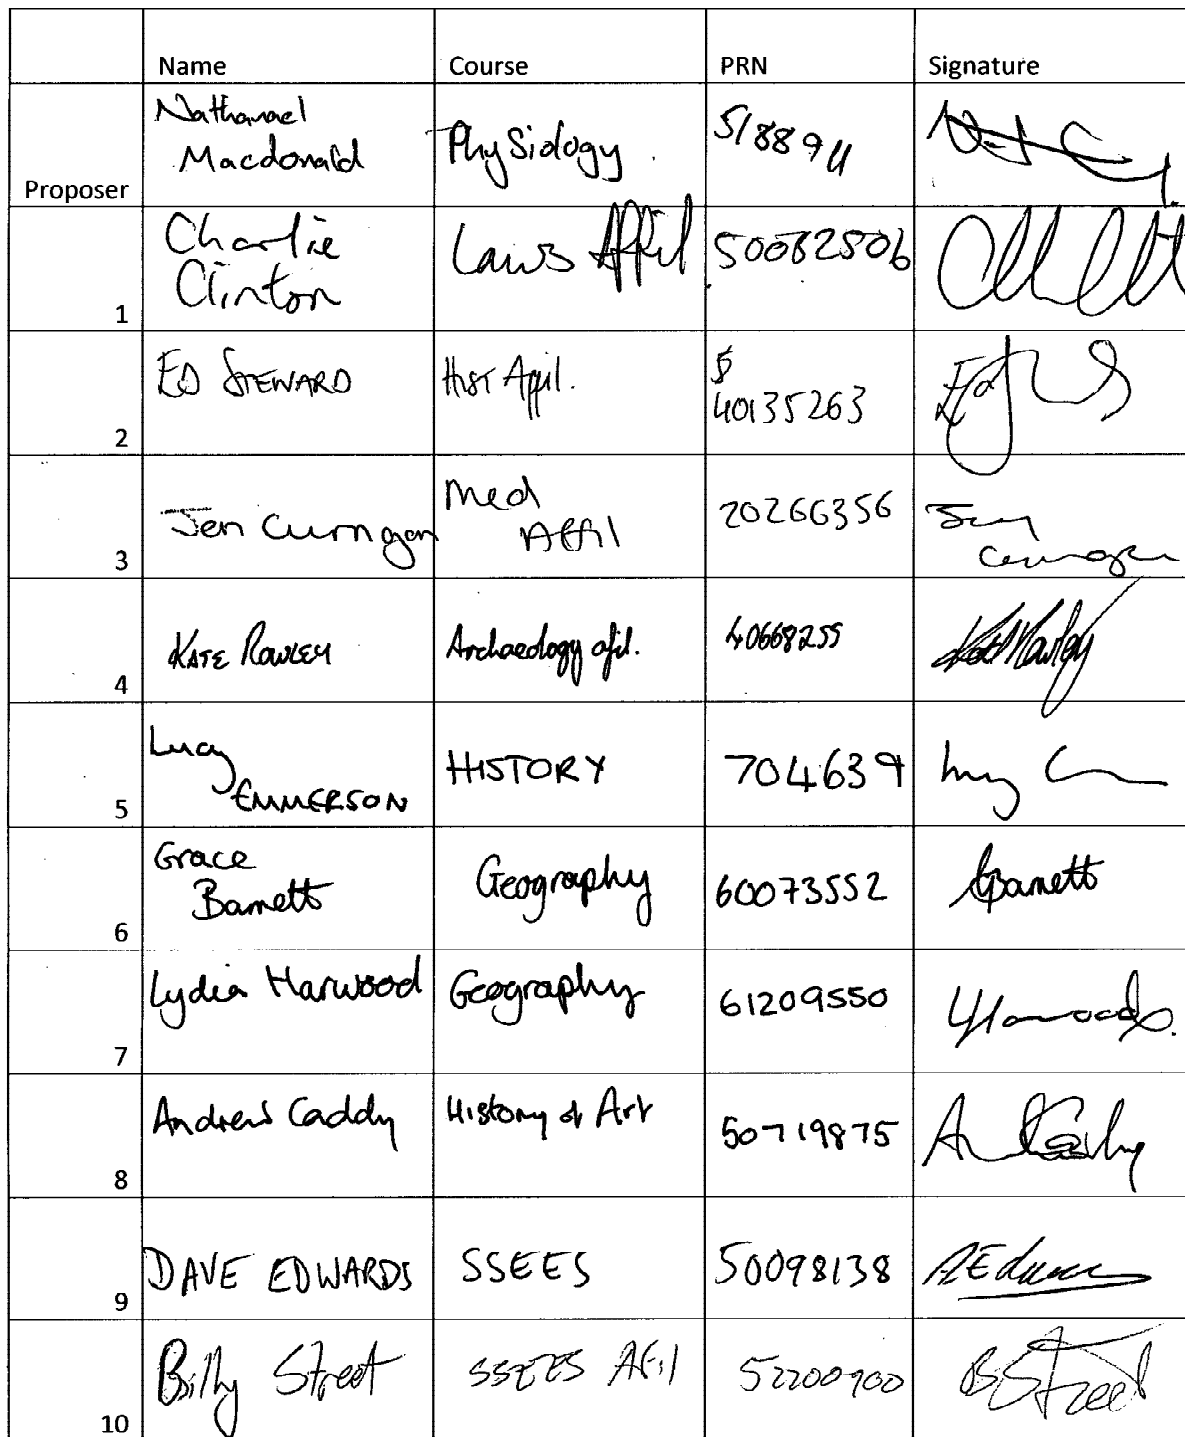 Name Course PRN Signature
Proposer Nathanael Macdonald Physiology 518894
1 Charlie Clinton Laws Affil 50082506
2 ED STEWARD HIST Affil. 40135263
3 Jen Curngan Med Affil 20266356
4 KATE ROWLEY Archaeology afil. 40668255 Kate Rowley
5 Lucy EMMERSON HISTORY 704639
6 Grace Barnett Geography 60073552 GBarnett
7 Lydia Harwood Geography 61209550 LHarwood
8 Andrew Caddy History of Art 50719875
9 DAVE EDWARDS SSEES 50098138
10 Billy Street SSEES Afil 52200900 B Street